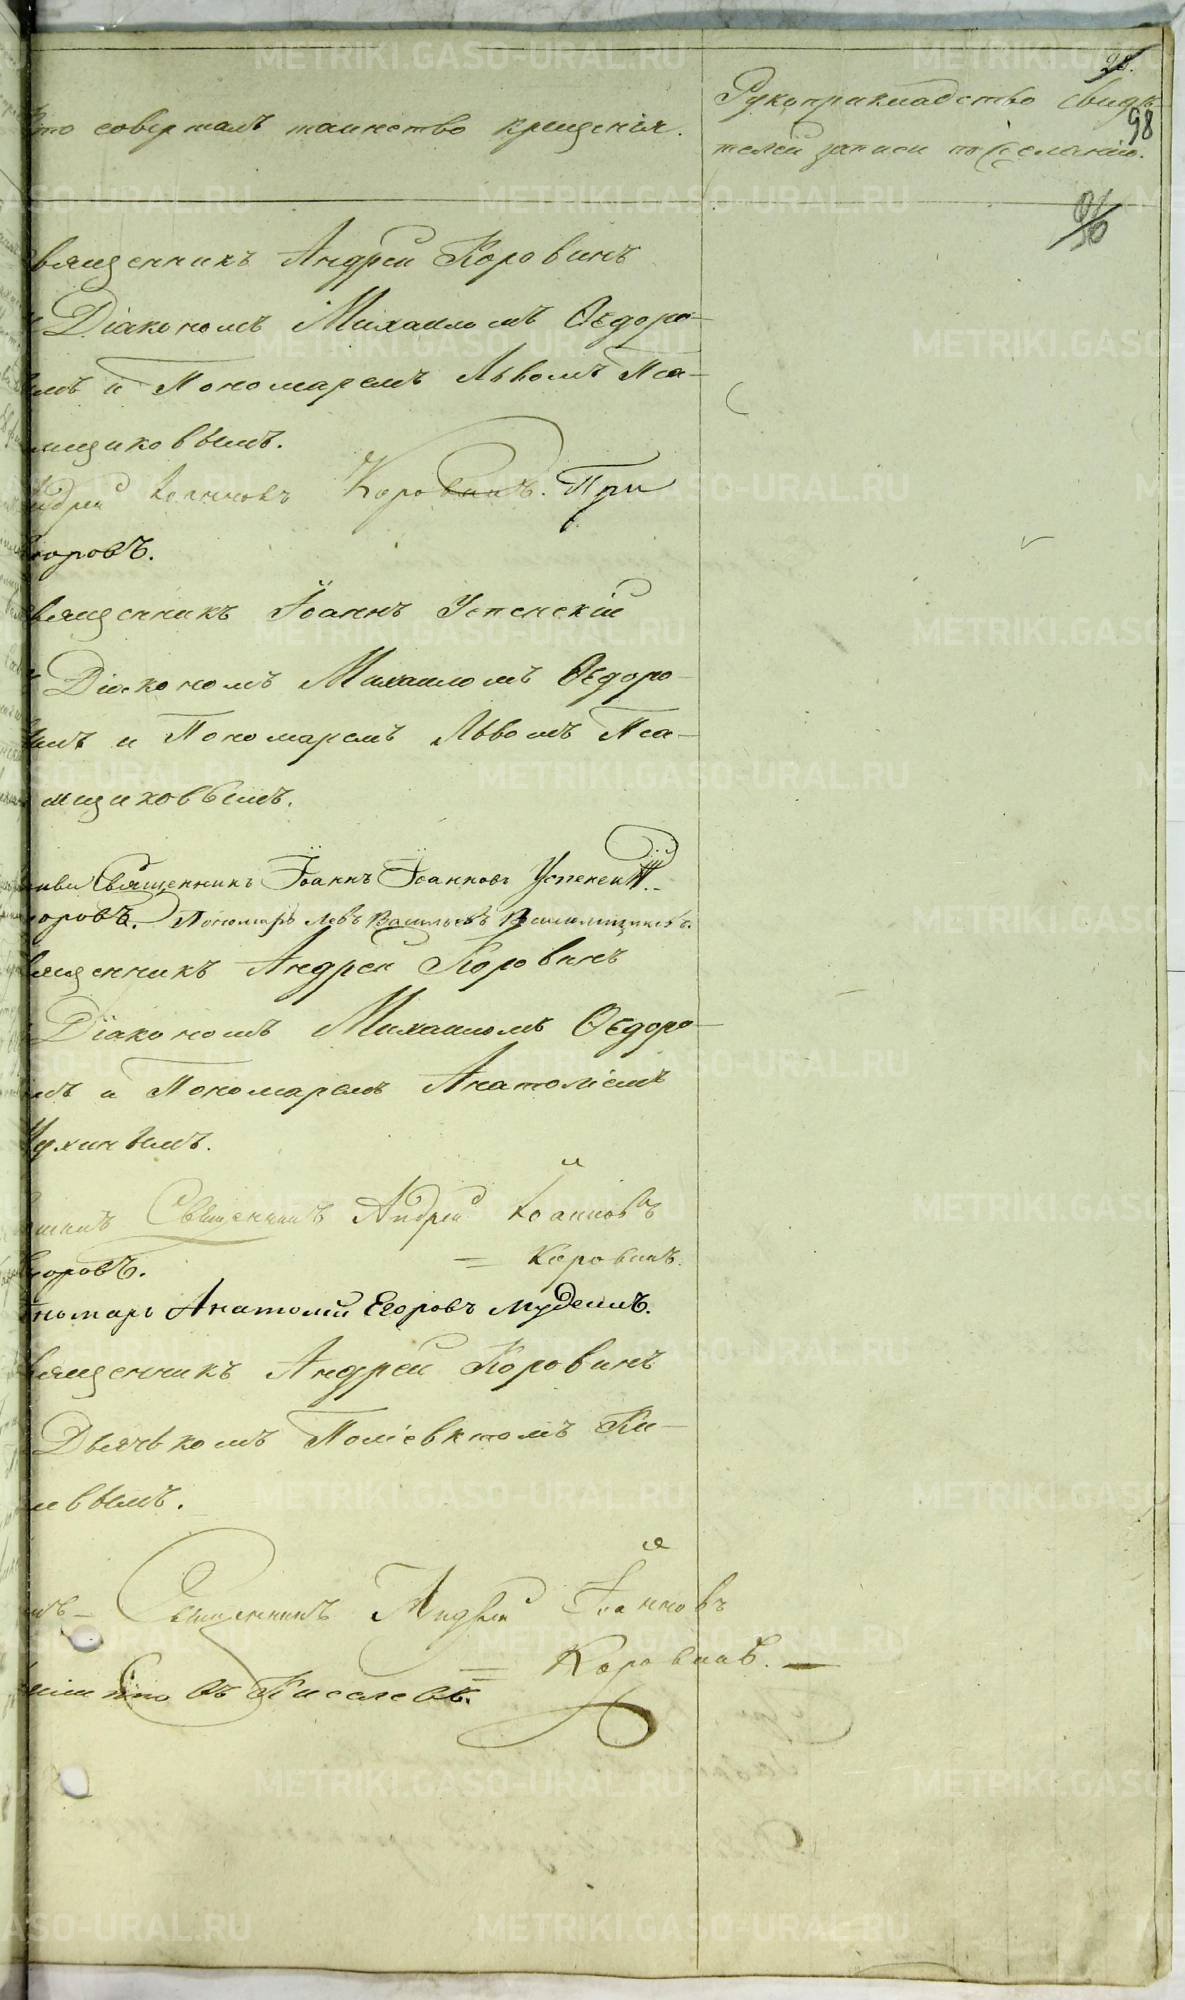 26.
98
96
Кто совершалъ таинство крещенія.
Рукоприкладство свидѣ-
телей записи по желанію.
вященникъ Андрей Коровинъ
Діакономъ Михаиломъ Ѳедоро-
ымъ и Пономаремъ Львомъ Пса-
мщиковымъ.
ндрей Іоанновъ Коровинъ. При
доровъ.
вященникъ Іоаннъ Успенскій
Діакономъ Михаиломъ Ѳедоро-
вымъ и Пономаремъ Львомъ Пса-
мщиковымъ.
Священникъ Іоаннъ Іоанновъ Успенскій.
доровъ. Пономарь Левъ Васильевъ
вященникъ Андрей Коровинъ
Діакономъ Михаиломъ Ѳедоро-
ымъ и Пономаремъ Анатоліемъ
Священникъ Андрей Іоанновъ
Коровинъ.
доровъ.
ономарь Анатолій Егоровъ
вященникъ Андрей Коровинъ
Дьячькомъ Поліевктомъ Ки-
левымъ.
Священникъ Андрей Іоанновъ
Коровинъ.
METRIKI.GASO-URAL.RU